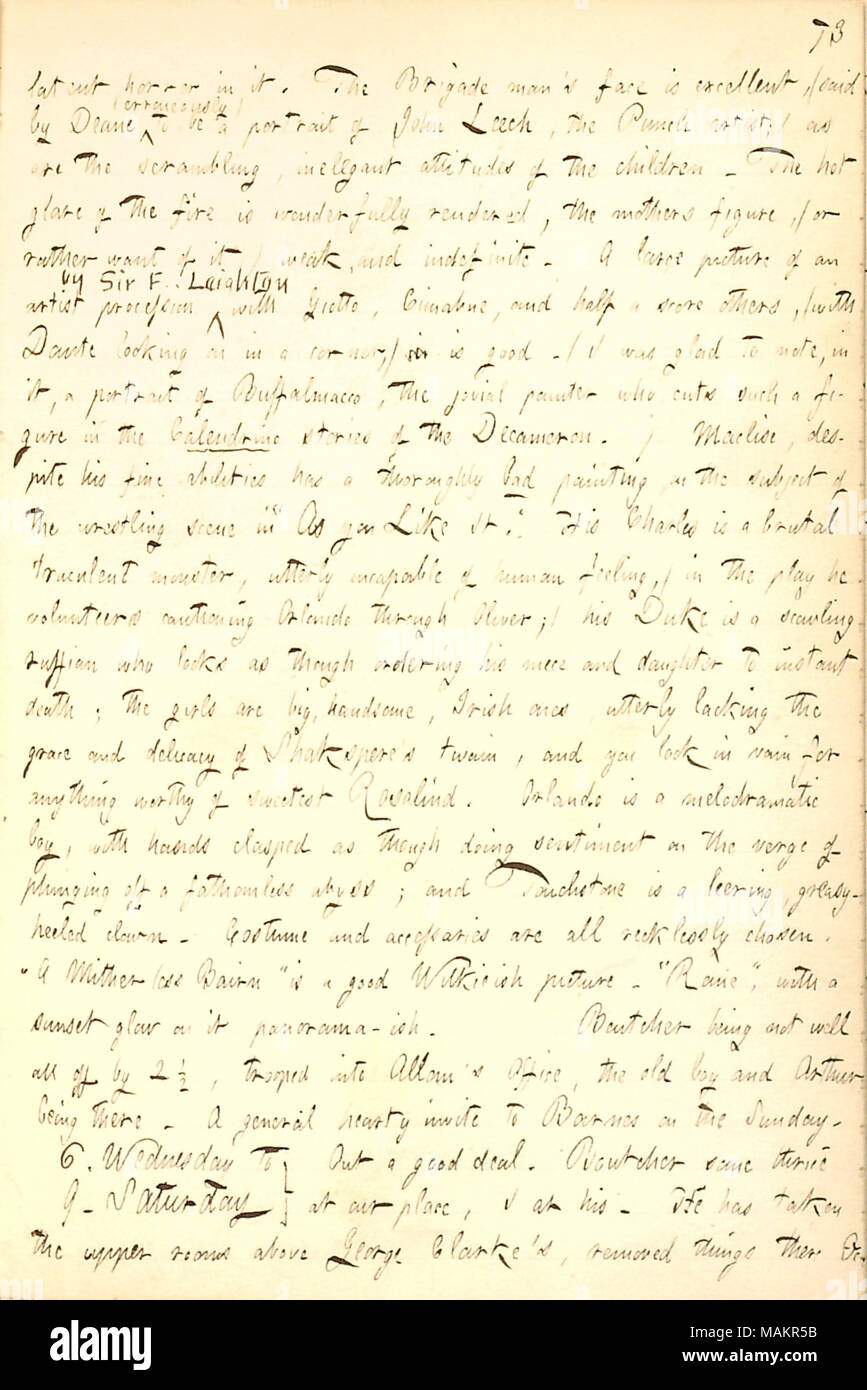 73
latent horror in it. The Brigade man's face is excellent, (said
(erroneously)
by Deane to be a portrait of John Leech, the Punch artist;) as
are the scrambling, inelegant attitudes of the children _ The hot
glare of the fire is wonderfully rendered, the mothers figure, (or
rather want of it,) weak, and indefinite _ A large picture of an
by Sir F. Leighton
artist procession with Giotto, Cimabue, and half a score others, (with
Dante looking on in a corner,) is good _ (I was glad to note, in
it, a portrait of Buffalmacco, the jovial painter who cuts such a fi-
gure in the Calendrino stories of the Decameron. ) Maclise, des-
pite his fine abilities has a thoroughly bad painting, on the subject of
the wrestling scene in "As you Like It." His Charles is a brutal
truculent monster, utterly incapable of human feeling, (in the play he
volunteers cautioning Orlando through Oliver;) his Duke is a scowling
ruffian who looks as though ordering his niece and daughter to instant
death; the girls are big, handsome, Irish ones utterly lacking the
grace and delicacy of Shakspere's twain, and you look in vain for
anything worthy of sweetest Rosalind. Orlando is a melodramatic
boy, with hands clasped as though doing sentiment on the verge of
plunging off a fathomless abyss; and Touchstone is a leering, greasy-
heeled clown _ Costume and accessaries are all recklessly chosen.
"A Mither less Bairn" is a good Wilkieish picture _ "Rome", with a
sunset glow on it panorama-ish. Boutcher being not well
all off by 2 ½, trooped into Allom's Office, the old boy and Arthur
being there _ A general hearty invite to Barnes on the Sunday.
6. Wednesday to } Out a good deal. Boutcher some thrice
9 _ Saturday } at our place, I at his _ He has taken
the upper rooms above George Clarke's, removed things there &c.
alamy
Image ID: MAKR5B
www.alamy.com